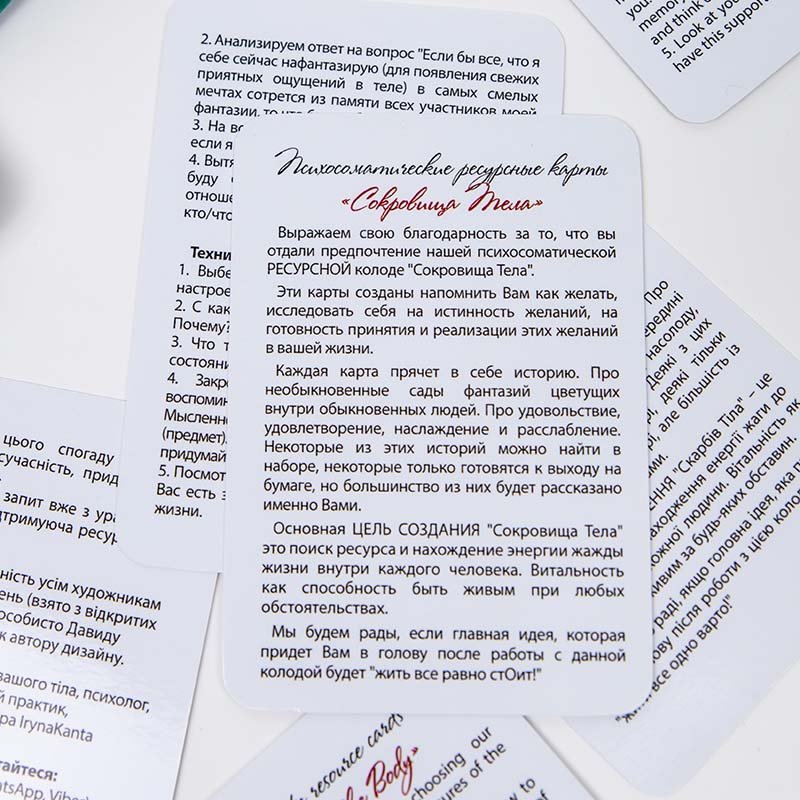 2. Анализируем ответ на вопрос "Если бы все, что я
себе сейчас нафантазирую (для появления свежих
приятных ощущений в теле) в самых смелых
мечтах сотрется из памяти всех участников моей
фантазии, то
3. На
если я
4. Вытя
буду
отноше
кто/что
Техни
1. Выбе
настрое
2. С как
Почему?
3. Что т
состояни
4. Закр
воспомин
Мысленн
(предмет).
придумай
5. Посмот
Вас есть з
жизни.
Психосоматические ресурсные карты
«Сокровища Тела»
Выражаем свою благодарность за то, что вы
отдали предпочтение нашей психосоматической
РЕСУРСНОЙ колоде "Сокровища Тела".
Эти карты созданы напомнить Вам как желать,
исследовать себя на истинность желаний, на
готовность принятия и реализации этих желаний
в вашей жизни.
Каждая карта прячет в себе историю. Про
необыкновенные сады фантазий цветущих
внутри обыкновенных людей. Про удовольствие,
удовлетворение, наслаждение и расслабление.
Некоторые из этих историй можно найти в
наборе, некоторые только готовятся к выходу на
бумаге, но большинство из них будет рассказано
именно Вами.
Основная ЦЕЛЬ СОЗДАНИЯ "Сокровища Тела"
это поиск ресурса и нахождение энергии жажды
жизни внутри каждого человека. Витальность
как способность быть живым при любых
обстоятельствах.
Мы будем рады, если главная идея, которая
придет Вам в голову после работы с данной
колодой будет "жить все равно стОит!"
your
memory
and think
5. Look at you
have this support
Про
середині
насолоду,
Деякі з цих
деякі тільки
але більшість із
ами.
ЕННЯ "Скарбів Тіла" – це
находження енергії жаги до
ожної людини. Вітальність як
живим за будь-яких обставин.
раді, якщо головна ідея, яка п
ову після роботи з цією коло
все одно варто!"
цього спогаду
сучасність, прид
запит вже з ура
дтримуюча ресур
ність усім художникам
ень (взято з відкритих
особисто Давиду
к автору дизайну.
вашого тіла, психолог,
й практик,
ра IrynaKanta
тайтеся:
atsApp, Viber
resource cards
Body»
choosing our
ures of the
w to